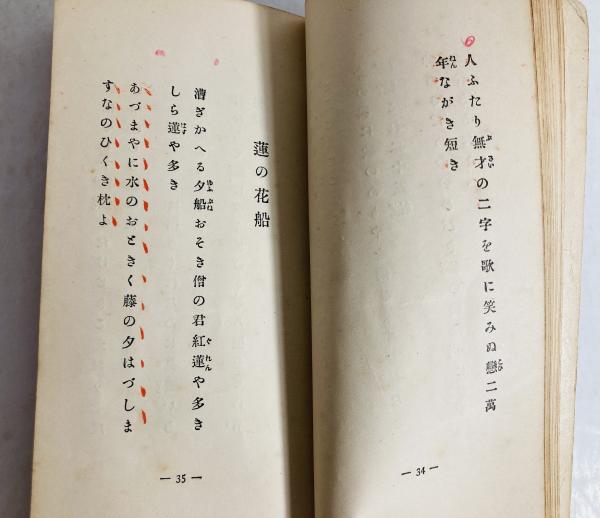 人ふたり無才の二字を歌に笑みぬ戀二萬
年ながき短き
— 34 —
蓮の花船
漕ぎかへる夕船おそき僧の君紅蓮や多き
しら蓮や多き
あづまやに水のおときく藤の夕はづしま
すなのひくき枕よ
— 35 —